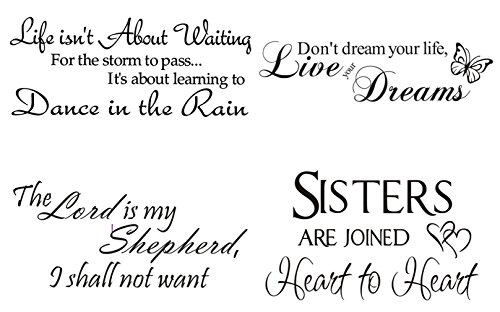 Life isn't About Waiting
For the storm to pass...
It's about learning to
Dance in the Rain
Don't dream your life,
Live your Dreams
The Lord is my
Shepherd,
I shall not want
SISTERS
ARE JOINED
Heart to Heart